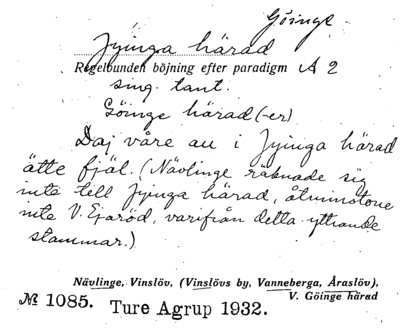 Göinge
Jyinga härad
Regelbunden böjning efter paradigm A 2
sing. tant.
Göinge härad (-er)
Daj våre au i Jyinga härad
ätte fjäl. (Nävlinge räknade sig
inte tell Jyinga härad, åtminstone
inte V. Ejaröd, varifrån detta yttrande
stammar.)
Nävlinge, Vinslöv, (Vinslövs by, Vanneberga, Äraslöv),
V. Göinge härad
№ 1085. Ture Agrup 1932.